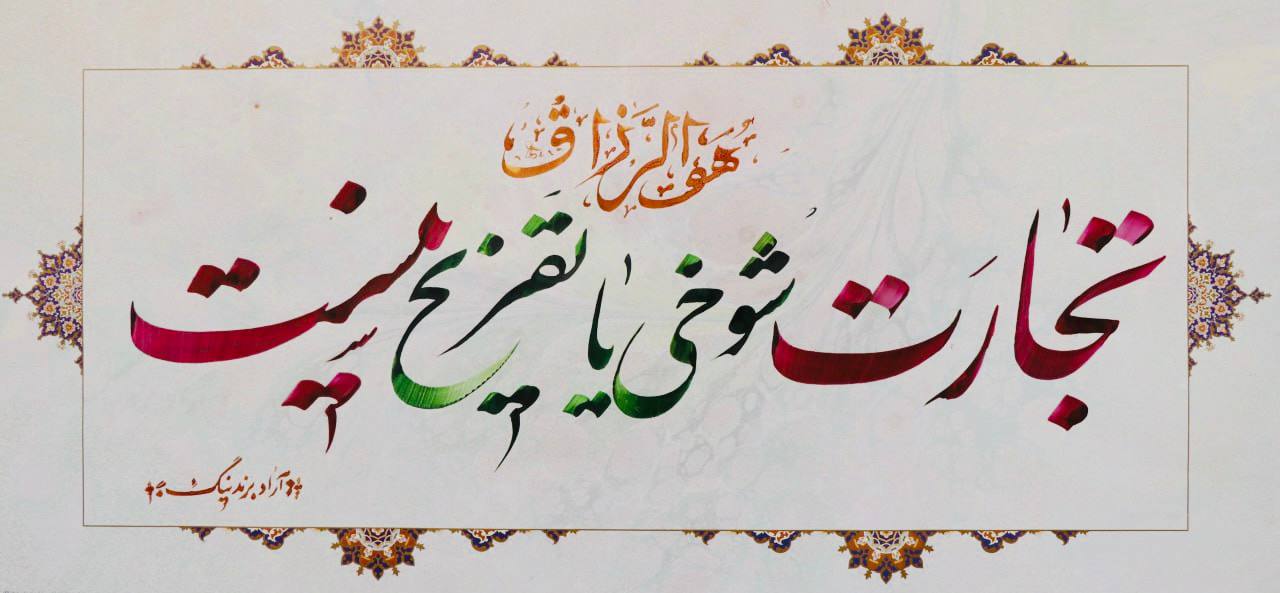 هو الرَّزاقُ
تجارَت شوخی یا تفریح نیست
آراد برندینگ